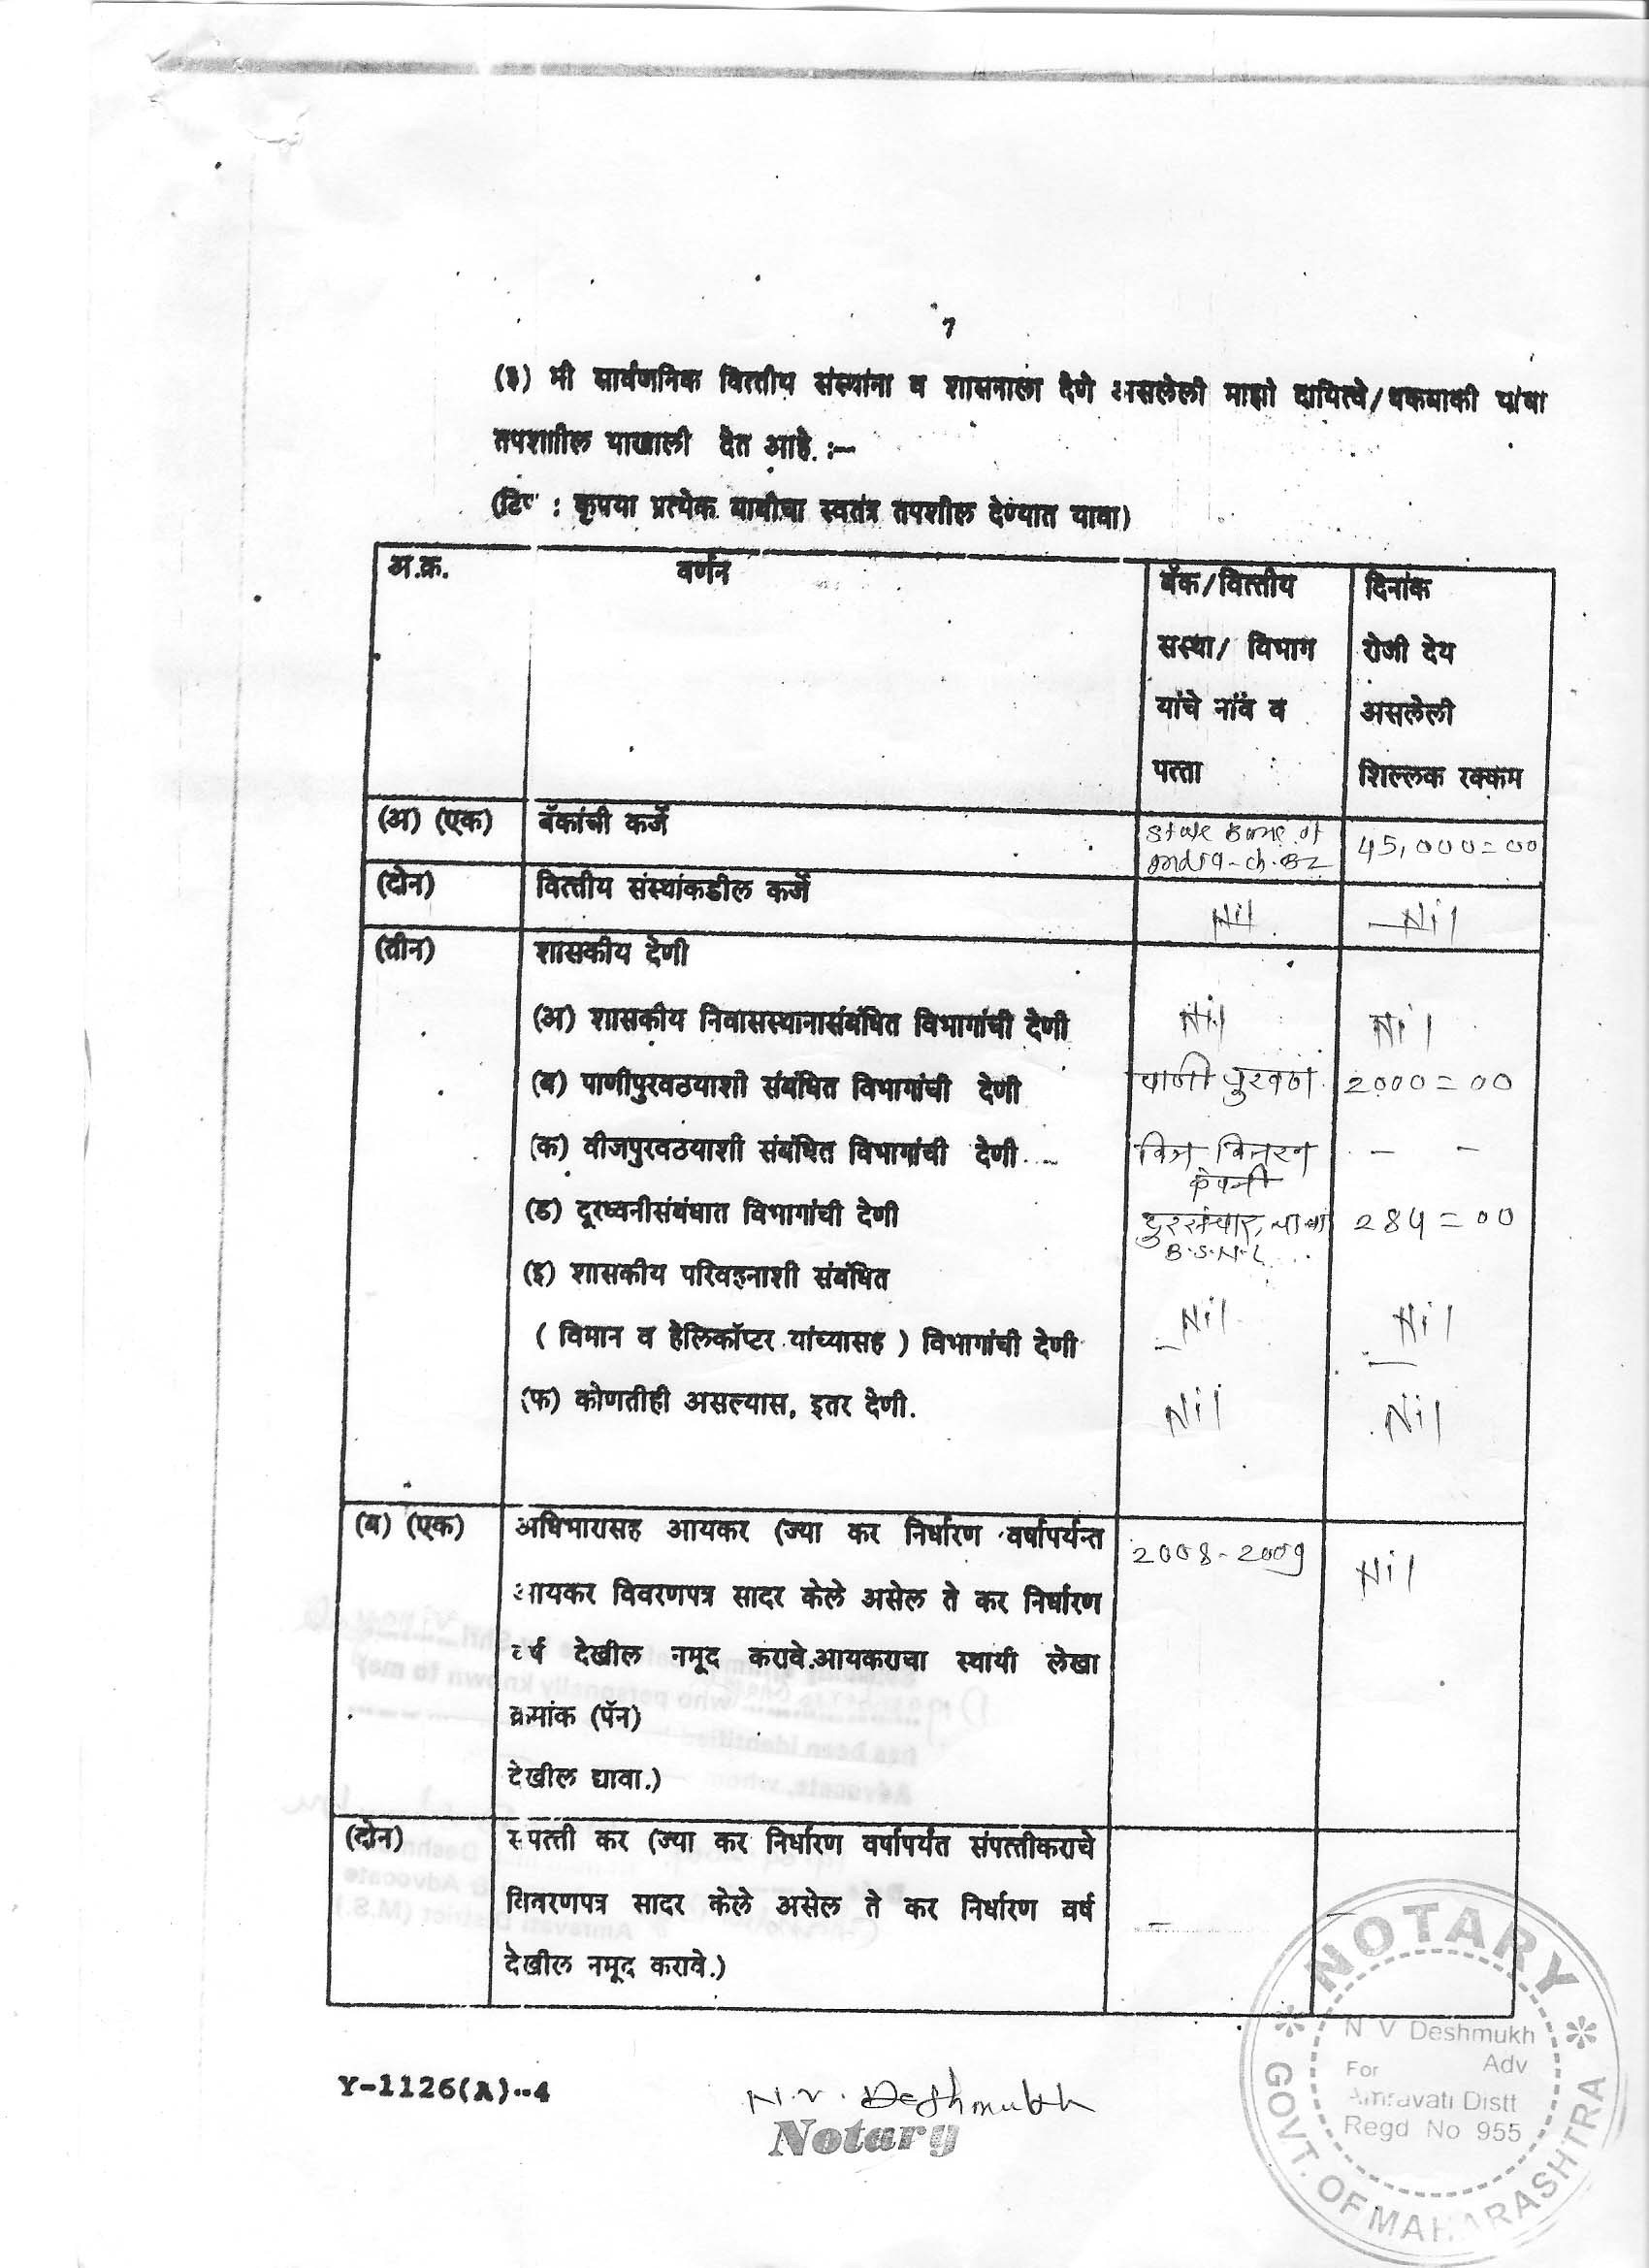 7
(इ) मी सार्वजनिक वित्तीय संस्थांना व शासनाला देणे असलेली माझी दायित्वे/थकबाकी यांचा
तपशील याखाली देत आहे. :—
(टिप : कृपया प्रत्येक बाबीचा स्वतंत्र तपशील देण्यात यावा)
अ.क्र. वर्णन बँक/वित्तीय दिनांक
सस्था/ विभाग रोजी देय
यांचे नांव व असलेली
पत्ता शिल्लक रक्कम
(अ) (एक) बँकांची कर्जे State of 45,000=00
(दोन) वित्तीय संस्थांकडील कर्जे Nil Nil
(तीन) शासकीय देणी
(अ) शासकीय निवासस्थानासंबंधित विभागांची देणी Nil Nil
(ब) पाणीपुरवठयाशी संबंधित विभागांची देणी पाणी पुरवठा 2000=00
(क) वीजपुरवठयाशी संबंधित विभागांची देणी विज वितरण - -
कंपनी
(ड) दूरध्वनीसंबंधात विभागांची देणी दुरसंचार 284=00
B.S.N.L
(इ) शासकीय परिवहनाशी संबंधित
( विमान व हेलिकॉप्टर यांच्यासह ) विभागांची देणी Nil Nil
(फ) कोणतीही असल्यास, इतर देणी. Nil Nil
(ब) (एक) अधिभारासह आयकर (ज्या कर निर्धारण वर्षापर्यन्त 2008-2009 Nil
आयकर विवरणपत्र सादर केले असेल ते कर निर्धारण
वर्ष देखील नमूद करावे.आयकराचा स्थायी लेखा
क्रमांक (पॅन)
देखील द्यावा.)
(दोन) संपत्ती कर (ज्या कर निर्धारण वर्षापर्यंत संपत्तीकराचे
विवरणपत्र सादर केले असेल ते कर निर्धारण वर्ष
देखील नमूद करावे.)
Y-1126(A)--4
N.V. Deshmukh
Notary
NOTARY
N V Deshmukh
Adv
For
Amravati Distt
Regd No 955
GOVT. OF MAHARASHTRA